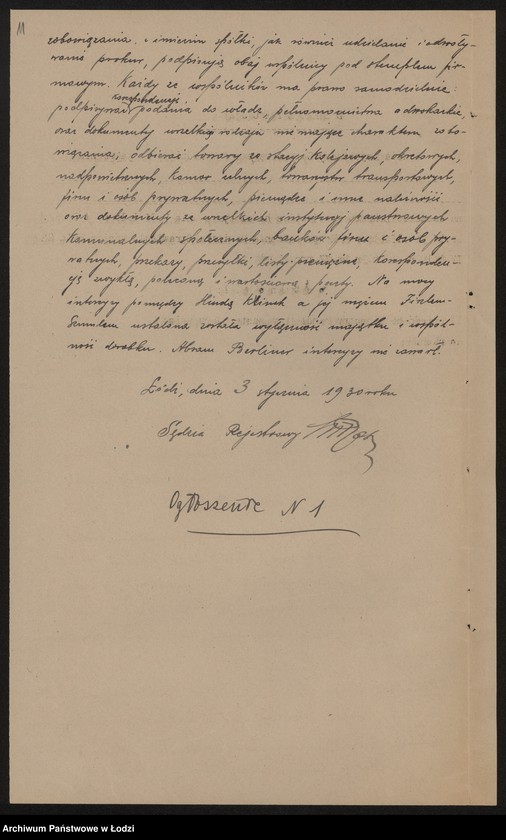 11
zobowiązania w imieniu spółki, jak również udzielanie i odwoły-
wanie prokur, podpisują obaj wspólnicy pod stemplem fir-
mowym. Każdy ze wspólników ma prawo samodzielnie:
korespondencję
podpisywać podania do władz, pełnomocnictwa adwokackie,
oraz dokumenty wszelkiego rodzaju nie mające charakteru zobo-
wiązania; odbierać towary ze stacyj kolejowych, okrętowych,
nadpowietrznych, komór celnych, towarzystw transportowych,
firm i osób prywatnych, pieniądze i inne należności
oraz dokumenty ze wszelkich instytucyj państwowych
komunalnych społecznych, banków firm i osób pry-
watnych, przekazy, przesyłki, listy pieniężne, koresponden-
cję zwykłą, poleconą i wartościową z poczty. Na mocy
intercyzy pomiędzy Hindą a jej mężem
ustalona została wyłączność majątku i wspól-
ność dorobku. Abram Berliner intercyzy nie zawarł.
Łódź, dnia 3 stycznia 1930 roku
Sędzia Rejestrowy
Ogłoszenie N 1
Archiwum Państwowe w Łodzi